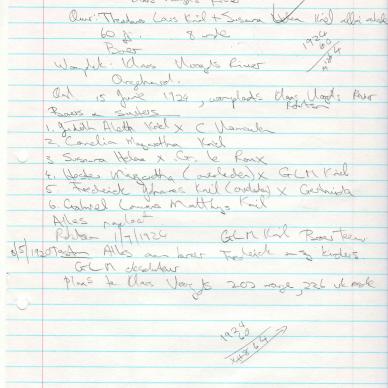 Klaas Voogts River
Ouers: Theodorus Louis Kriel + Susanna Kriel albei oorlede
60 jr. 8 mde
Boer
Woonplek: Klaas Voogts River
Ongehuud.
Oorl. 15 June 1924, woonplaats Klaas Voogts River
Robertson
Broers en Susters
1. Judith Aletta Kriel x C
2. Cornelia Magaretha Kriel
3 Susanna Helena x G. le Roux
4. Hester Magaretha (oorleden) x GLM Kriel
5. Frederick Johannes Kriel (oorlede) x Gertruida
6. Gabriel Lourens Matthys Kriel
Alles nagelaat
Robtson 1/7/1924 GLM Kriel Broer Teken
8/5/1920 Testam Alles aan broer Frederick en sy kinders
GLM eksekuteur
plaas te Klaas Voogts 202 morge, 226 vk roede
1924
60
1864
1924
60
1864